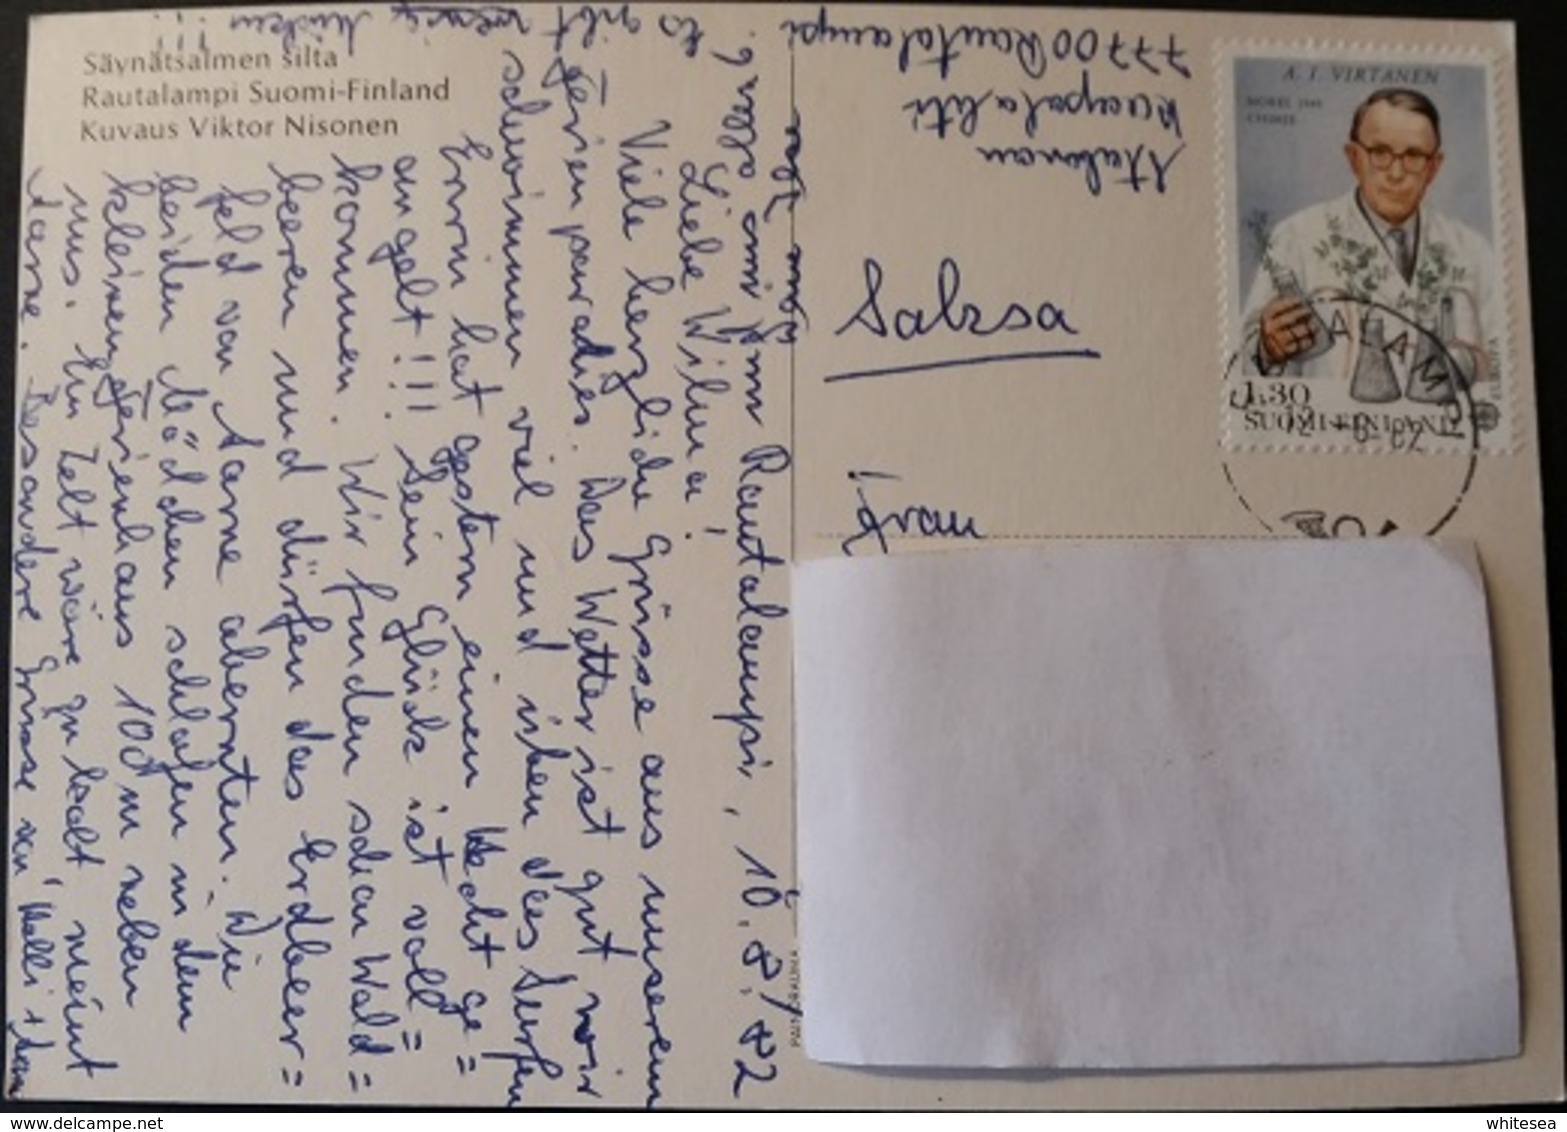 Säynätsalmen silta
Rautalampi Suomi-Finland
Kuvaus Viktor Nisonen
Rautalampi, 10.8.82
Liebe Wilma!
Viele herzliche Grüsse aus unserem
Ferienparadies. Das Wetter ist gut wir
schwimmen viel und üben das Surfen
Erwin hat gestern einen Hecht ge=
angelt!!! Sein Glück ist voll=
kommen. Wir funden schon Wald=
beeren und dürfen das Erdbeer=
feld von Aarne abernten. Die
beiden Mädchen schlafen in dem
kleinen Ferienhaus 100 m neben
uns. Im Zelt wäre zu kalt meint
Aarne. Besondere Grüsse an
Es gibt wenig Mücken!!!
77700 Rautalampi
A. I. VIRTANEN
NOBEL 1945
CHIMIE
1.30
SUOMI FINLAND
EUROPA
Salzsa
Frau
whitesea